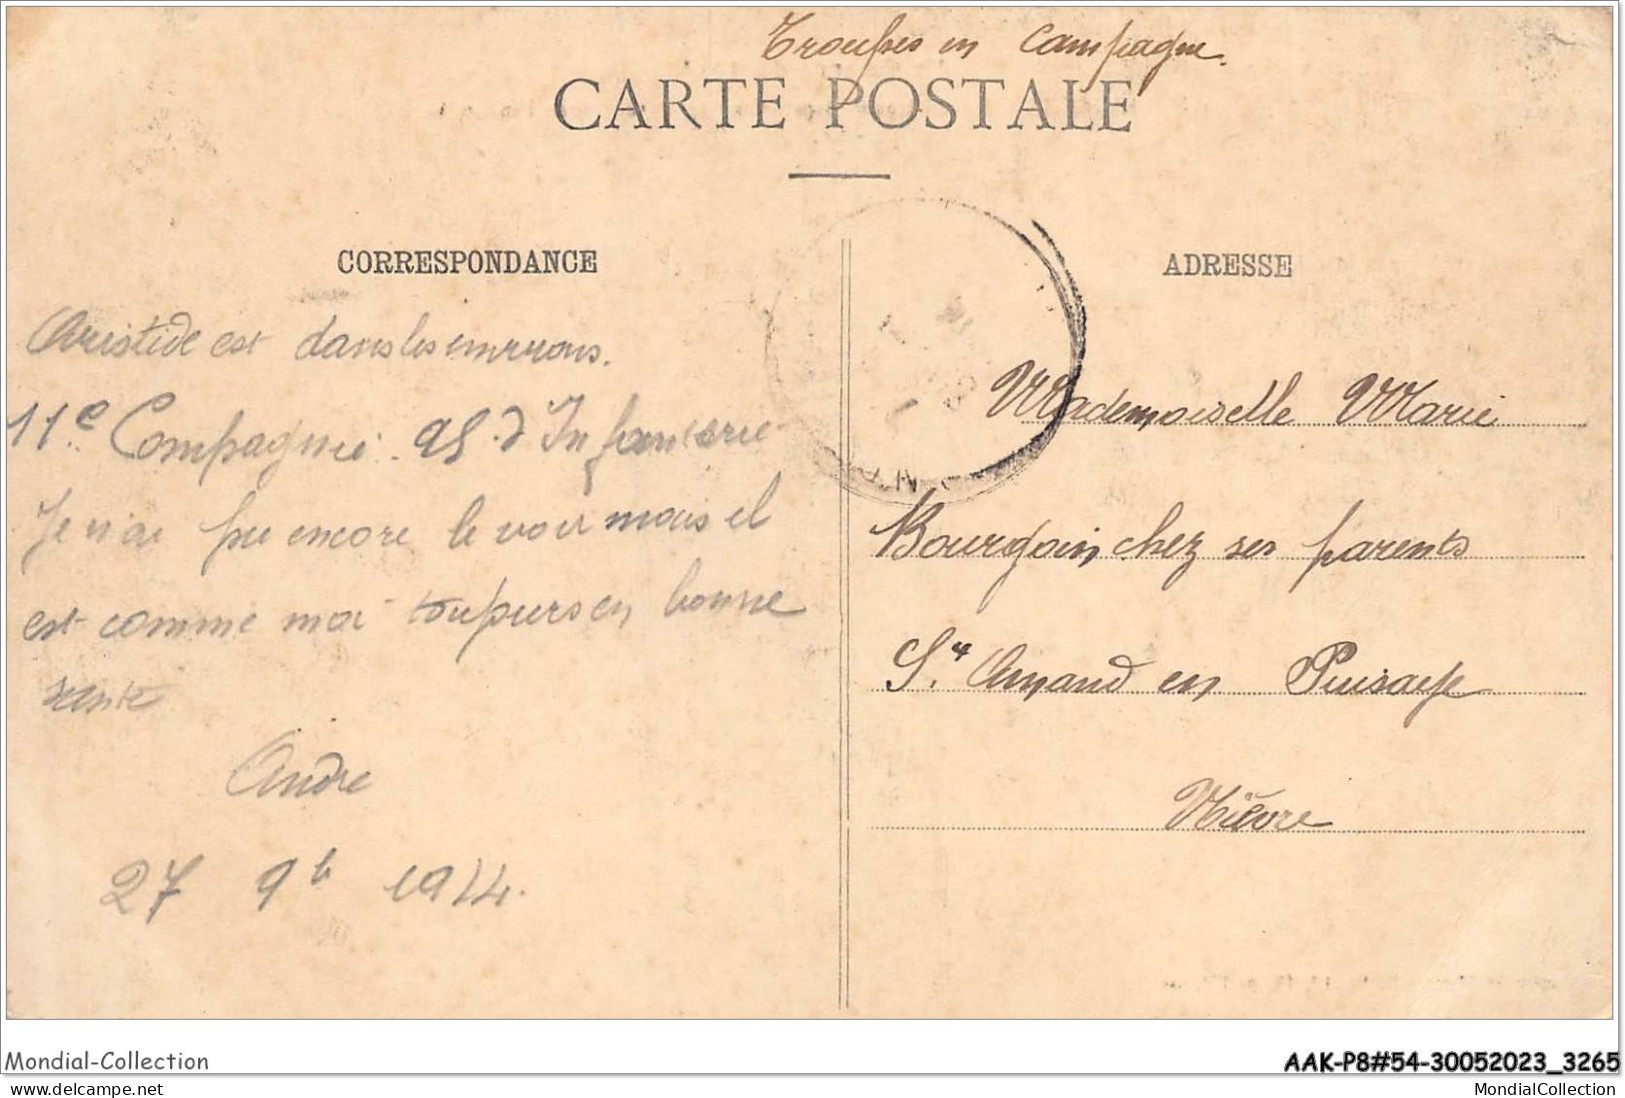 Troupes en Campagne.
CARTE POSTALE
CORRESPONDANCE
Aristide est dans les environs.
11e Compagnie. 95. d Infanterie
Je n'ai pu encore le voir mais il
est comme moi toujours en bonne
santé
André
27 9b 1914.
ADRESSE
Mademoiselle Marie
Bourgoin chez ses parents
St Amand en Puisaye
Nièvre
Mondial-Collection
AAK-P8#54-30052023_3265
MondialCollection
www.delcampe.net